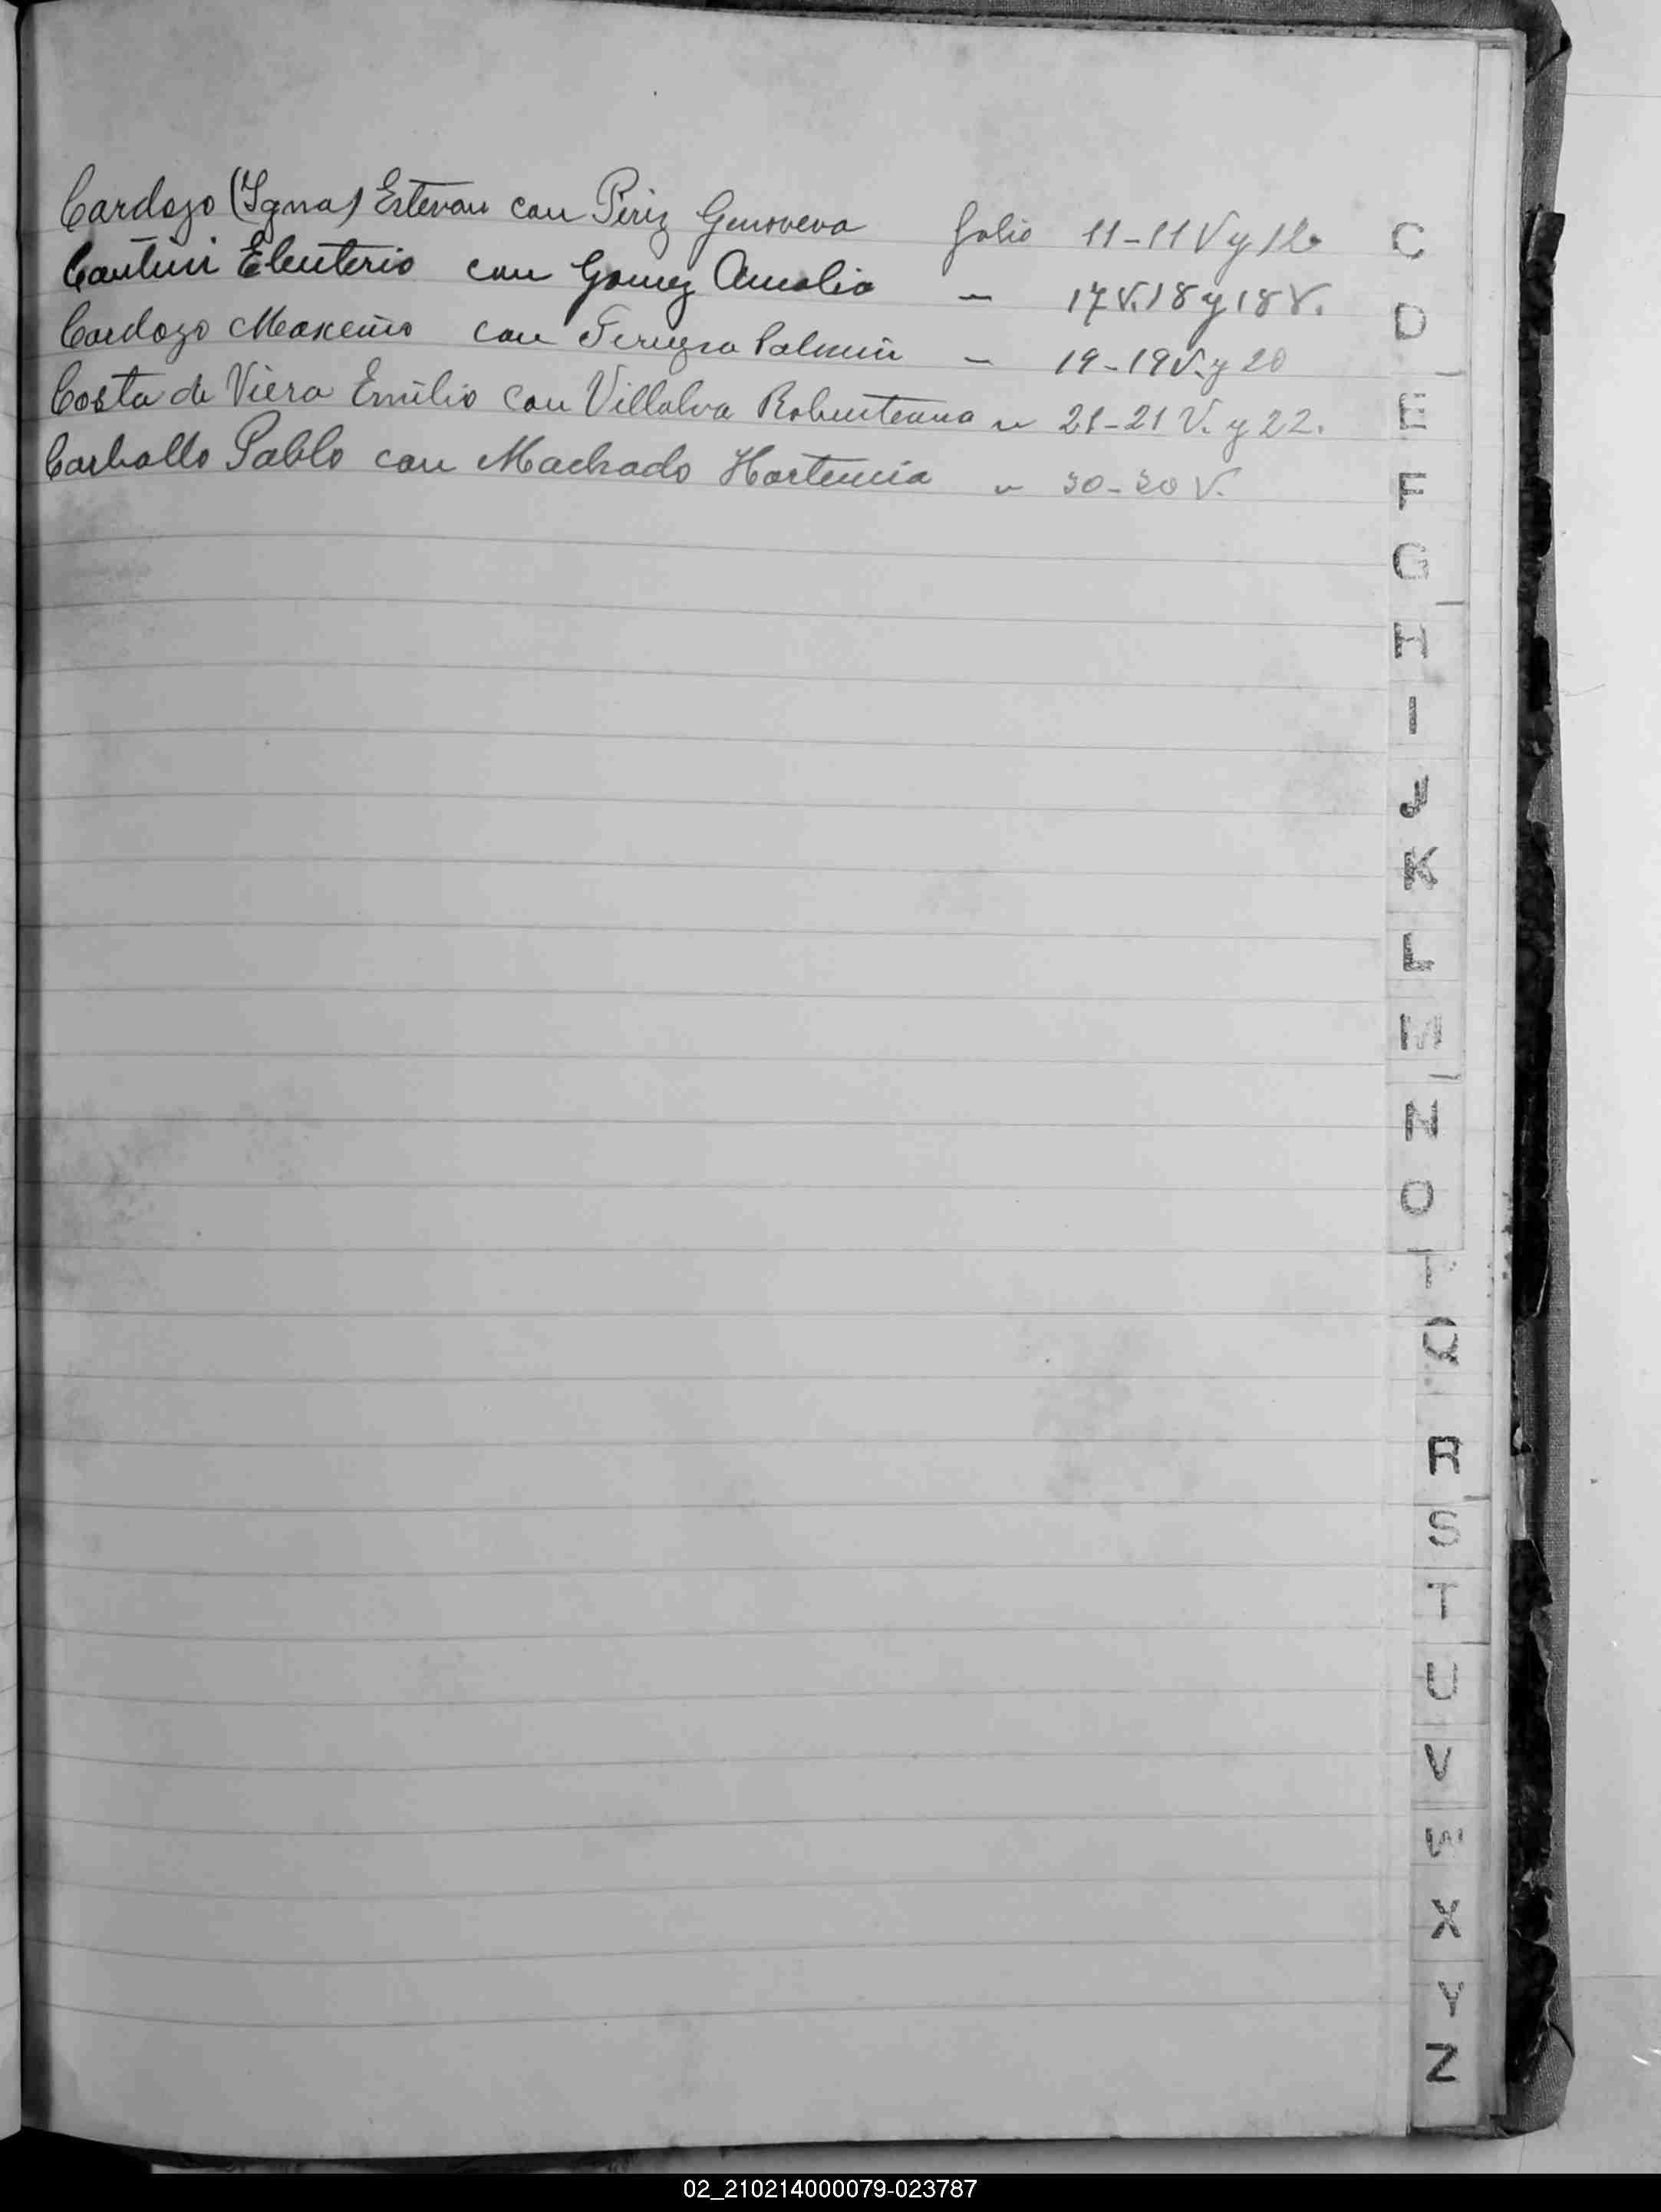 Cardozo (Igna) Estevan con Periz Genoveva folio 11-11 V y 12.
Cantini Eleuterio con Gomez Amalia — 17 V. 18 y 18 V.
Cardozo Maximo con Palmira — 19-19 V. y 20
Costa de Viera Emilio con Villalva Robustiana ~ 21-21 V. y 22.
Carballo Pablo con Machado Hortencia ~ 30-30 V.
C
D
E
F
G
H
I
J
K
L
M
N
O
P
Q
R
S
T
U
V
W
X
Y
Z
02_210214000079-023787